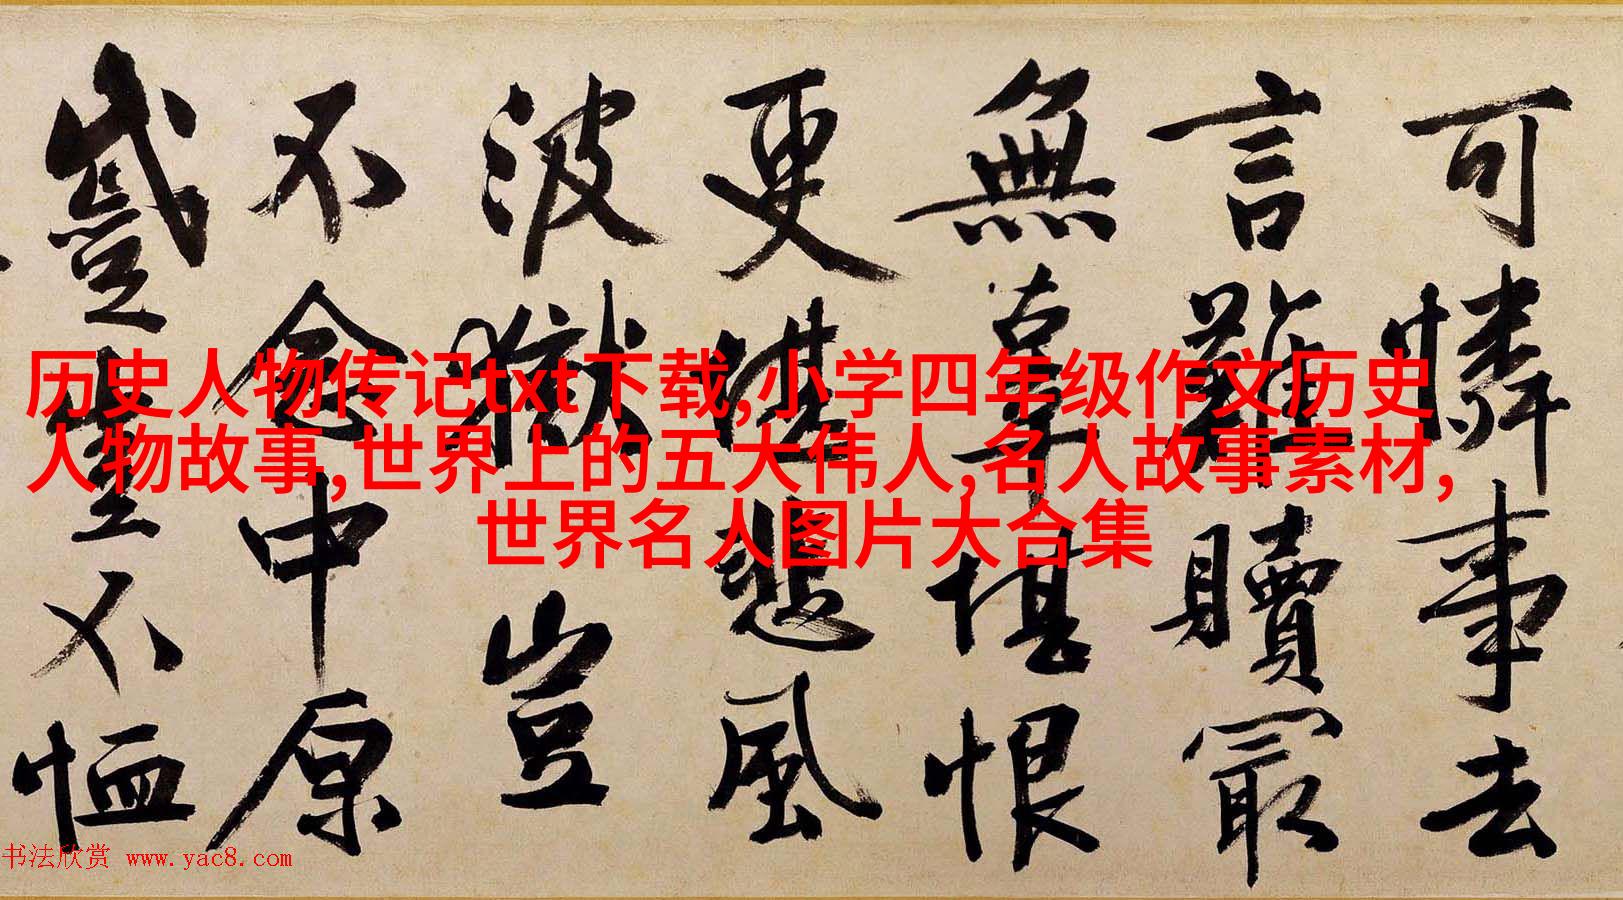 历史人物传记txt下载,小学四年级作文历史
人物故事,世界上的五大伟人,名人故事素材,
世界名人图片大合集
可憐事去
言難贖最
無辜堪恨
更悲風
波獄豈
不念中原
蹙豈不恤
书法欣赏 www.yac8.com